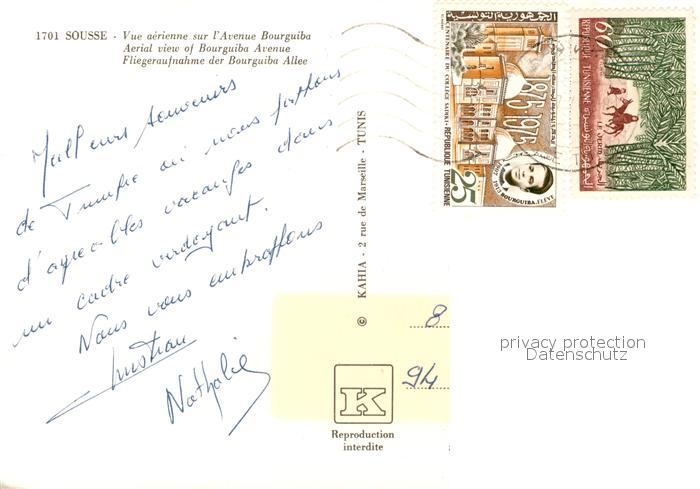 1701 SOUSSE - Vue aérienne sur l'Avenue Bourguiba
Aerial view of Bourguiba Avenue
Fliegeraufnahme der Bourguiba Allee
Meilleurs souvenirs
de Tunisie où nous passons
d'agréables vacances dans
un cadre verdoyant.
Nous vous embrassons
Christian
Nathalie
© KAHIA - 2 rue de Marseille - TUNIS
8
94
K
Reproduction
interdite
الجمهورية التونسية
CENTENAIRE DU COLLEGE SADIKI
1875-1975
REPUBLIQUE TUNISIENNE
25
BOURGUIBA, ELEVE
6
REPUBLIQUE TUNISIENNE
الجمهورية التونسية
privacy protection
Datenschutz